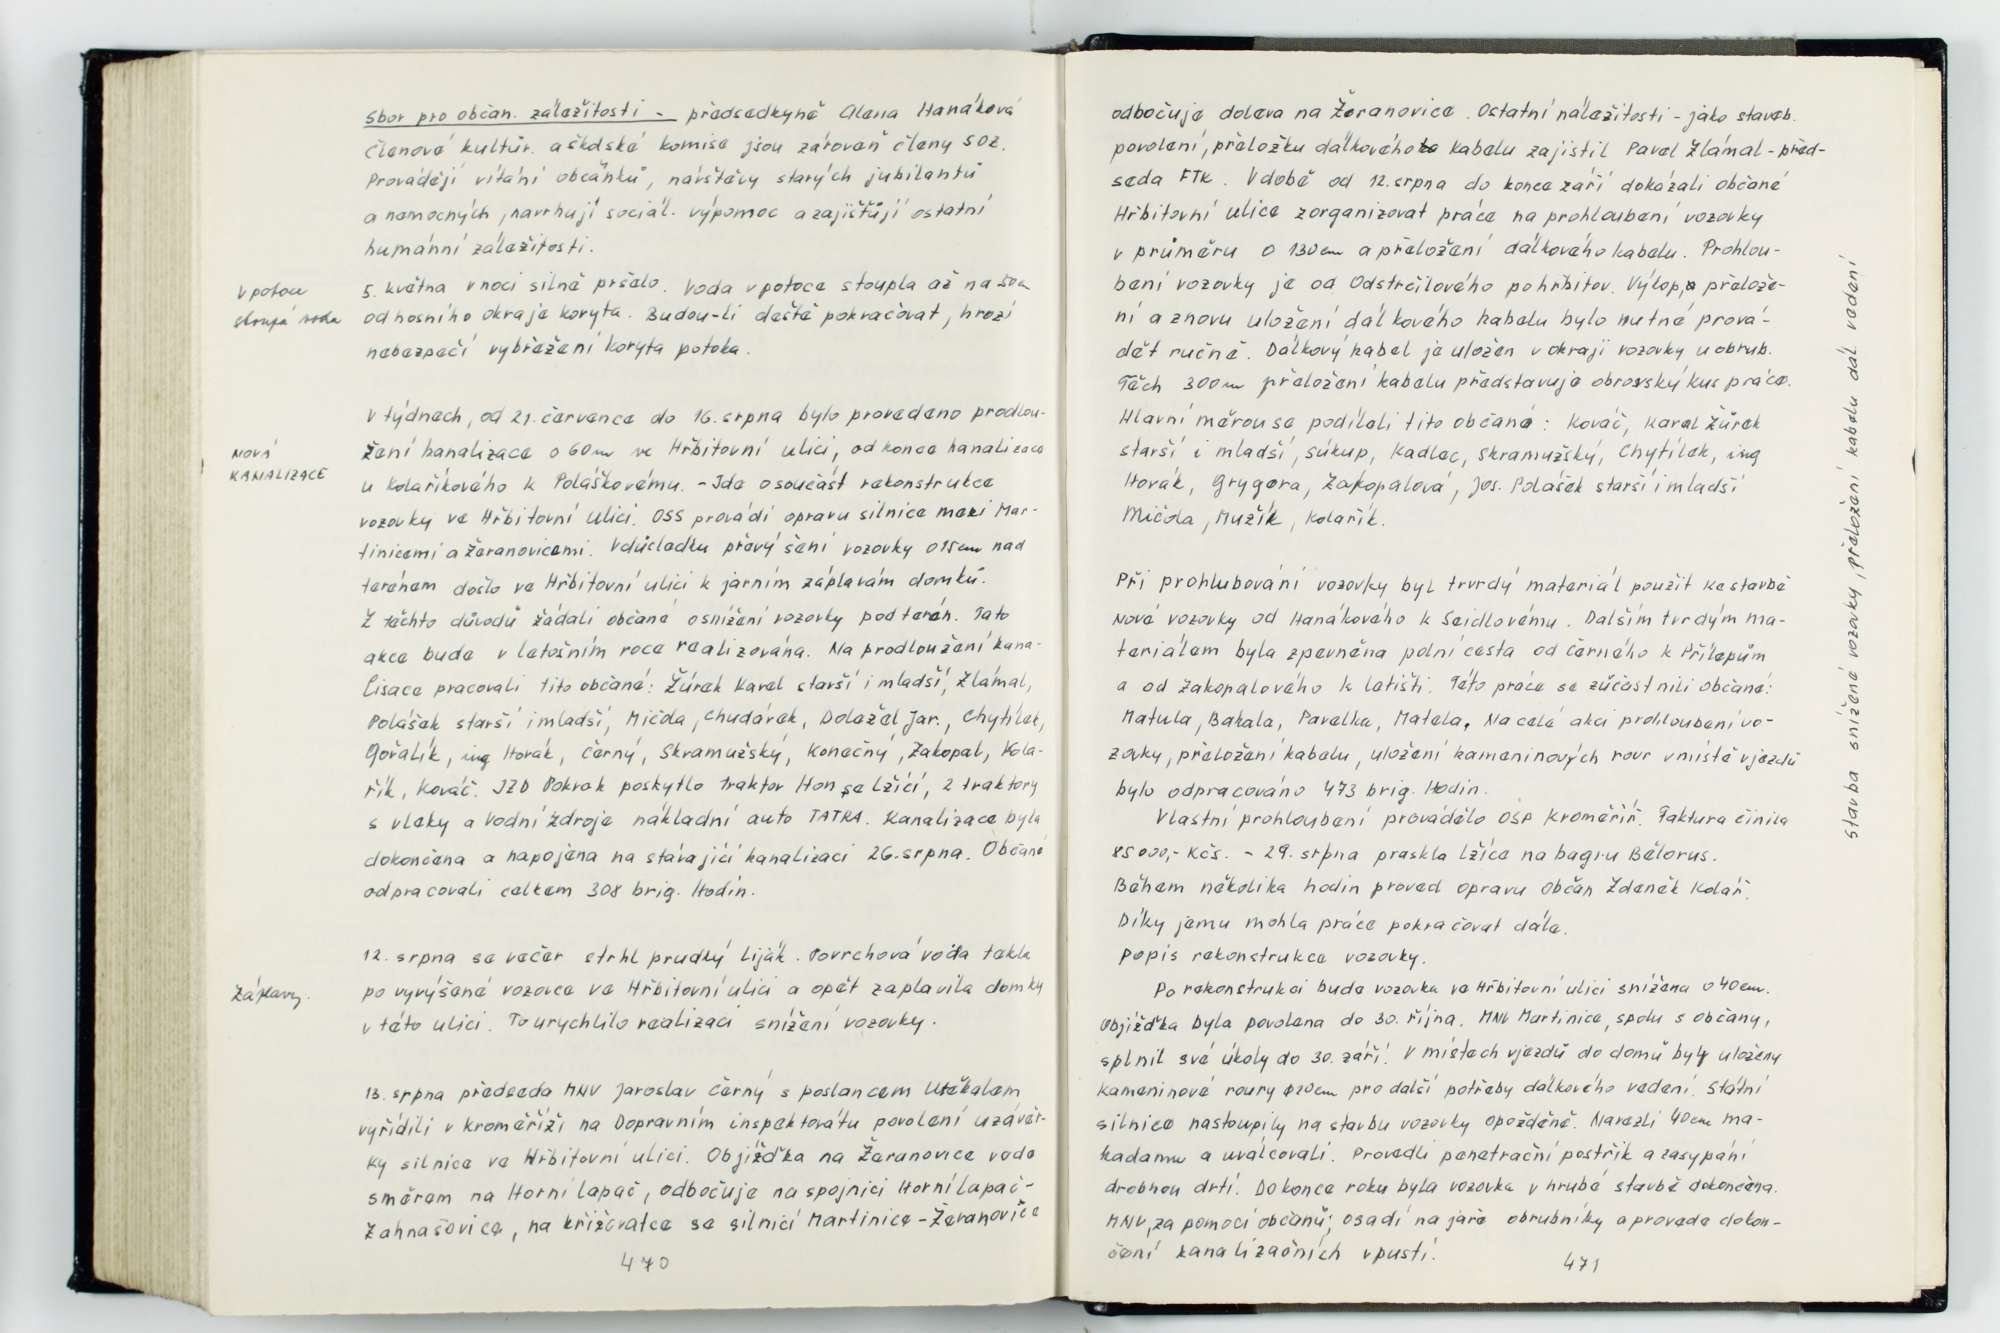 Sbor pro občan. záležitosti - předsedkyně Alena Hanáková
členové kultúr. a škdské komise jsou zároveň členy SOZ.
Provádějí vítání občánků, návštěvy starých jubilantů
a nemocných, navrhují sociál. výpomoc a zajišťují ostatní
humánní záležitosti.
V potoce
stoupá voda
5. května v noci silně pršelo. Voda v potoce stoupla až na 50cm
od hosního okraje koryta. Budou-li deště pokračovat, hrozí
nebezpečí vybřežení koryta potoka.
NOVÁ
KANALIZACE
V týdnech, od 21. července do 16. srpna bylo provedeno prodlou-
žení kanalizace o 60m ve Hřbitovní ulici, od konce kanalizace
u Kolaříkového k Poláškovému. - Jde o součást rekonstrukce
vozovky ve Hřbitovní ulici. OSS provádí opravu silnice mezi Mar-
tinicemi a Žeranovicemi. V důsledku převýšení vozovky o 15cm nad
terénem došlo ve Hřbitovní ulici k jarním záplavám domků.
Z těchto důvodů žádali občané o snížení vozovky pod terén. Tato
akce bude v letošním roce realizována. Na prodloužení kana-
lisace pracovali tito občané: Žůrek Karel starší i mladší, Zlámal,
Polášek starší i mladší, Mičola, Chudárek, Doležel Jar., Chytílek,
Gořalík, ing Horák, Černý, Skramužský, Konečný, Zakopal, Kola-
řík, Kováč. JZD Pokrok poskytlo traktor Hon se lžící, 2 traktory
s vleky a Vodní zdroje nákladní auto TATRA. Kanalizace byla
dokončena a napojena na stávající kanalizaci 26. srpna. Občané
odpracovali celkem 308 brig. Hodin.
Záplavy.
12. srpna se večer strhl prudký liják. Povrchová voda tekla
po vyvýšené vozovce ve Hřbitovní ulici a opět zaplavila domky
v této ulici. To urychlilo realizaci snížení vozovky.
13. srpna předseda MNV Jaroslav Černý s poslancem Utěkalem
vyřídili v Kroměříži na Dopravním inspektorátu povolení uzávěr-
ky silnice ve Hřbitovní ulici. Objížďka na Žeranovice vede
směrem na Horní lapač, odbočuje na spojnici Horní lapač-
Zahnašovice, na křižovatce se silnicí Martinice-Žeranovice
470
odbočuje doleva na Žeranovice. Ostatní náležitosti - jako staveb.
povolení, přeložku dálkového kabelu zajistil Pavel Zlámal - před-
seda FTK. V době od 12. srpna do konce září dokázali občané
Hřbitovní ulice zorganizovat práce na prohloubení vozovky
v průměru o 130cm a přeložení dálkového kabelu. Prohlou-
bení vozovky je od Odstrčilového po hřbitov. Výkop, přelože-
ní a znovu uložení dálkového kabelu bylo nutné prová-
dět ručně. Dálkový kabel je uložen v okraji vozovky u obrub.
Těch 300m přeložení kabelu představuje obrovský kus práce.
Hlavní měrou se podíleli tito občané: Kováč, Karel Žůrek
starší i mladší, Súkup, Kadlec, Skramužský, Chytílek, ing
Horák, Grygera, Zakopalová, Jos. Polášek starší i mladší
Mičola, Mužík, Kolařík.
Při prohlubování vozovky byl trvrdý materiál použit ke stavbě
nové vozovky od Hanákového k Seidlovému. Dalším tvrdým ma-
teriálem byla zpevněna polní cesta od Černého k Přílepům
a od Zakopalového k letišti. Této práce se zúčastnili občané:
Matula, Bakala, Pavelka, Matela. Na celé akci prohloubení vo-
zovky, přeložení kabelu, uložení kameninových rour v místě vjezdů
bylo odpracováno 473 brig. Hodin.
Vlastní prohloubení provádělo OSP Kroměříž. Faktura činila
85 000,- Kčs. - 29. srpna praskla lžíce na bagru Bělorus.
Během několika hodin proved opravu občan Zdeněk Kolář.
Díky jemu mohla práce pokračovat dále.
Popis rekonstrukce vozovky.
Po rekonstrukci bude vozovka ve Hřbitovní ulici snížena o 40cm.
Objížďka byla povolena do 30. října. MNV Martinice, spolu s občany,
splnil své úkoly do 30. září. V místech vjezdů do domů byly uloženy
kameninové roury ø20cm pro další potřeby dálkového vedení. Státní
silnice nastoupily na stavbu vozovky opožděně. Navezli 40cm ma-
kadamu a uválcovali. Provedli penetrační postřik a zasypání
drobnou drtí. Do konce roku byla vozovka v hrubé stavbě dokončena.
MNV, za pomoci občanů, osadí na jaře obrubníky a provede dokon-
čení kanalizačních vpustí.
471
stavba snížené vozovky, přeložení kabelu dál. vedení